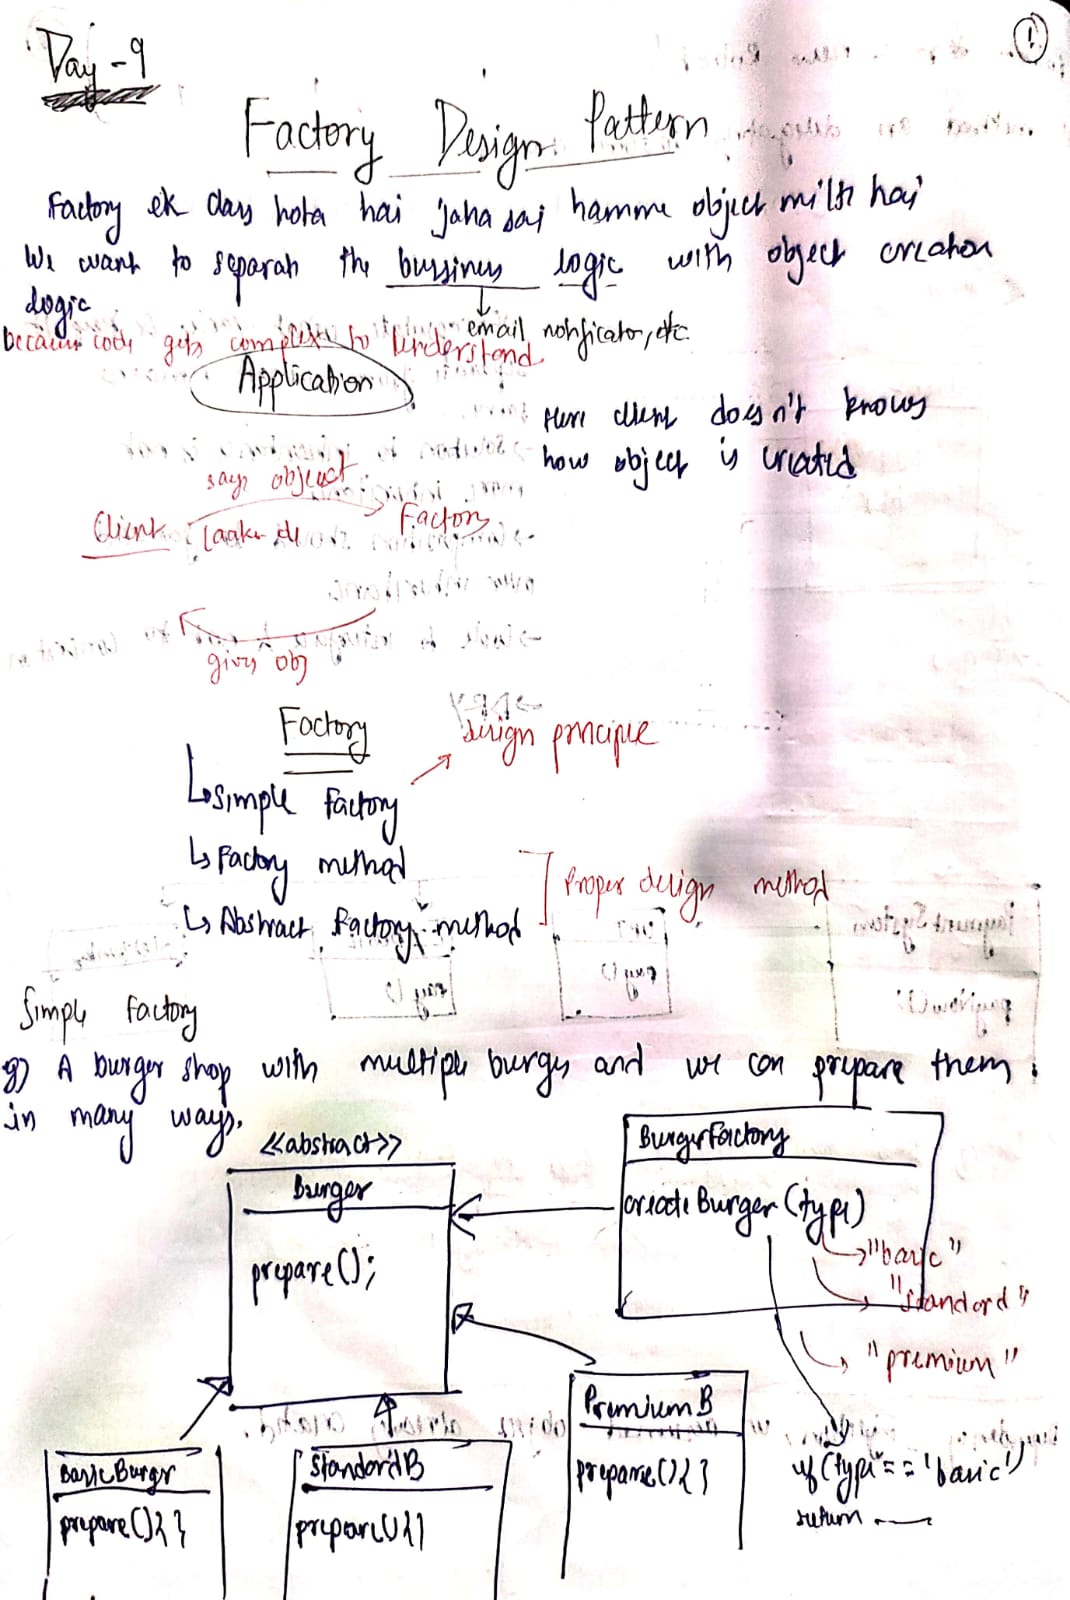 Day - 9
1
Factory Design Pattern
Factory ek class hota hai jaha sai hamme object milti hai
We want to separate the bussiness logic with object creation
logic
email notificator, etc.
because code gets complex to understand
Application
Here client doesn't knows
how object is created
says object
Client laake de Factory
gives obj
Factory
design principle
Simple Factory
Factory method
Proper design method
Abstract Factory method
Simple Factory
A burger shop with multiple burgers and we can prepare them
in many ways.
<<abstract>>
Burger
prepare();
BurgerFactory
create Burger (type)
"basic"
"standard"
"premium"
Basic Burger
prepare(){ }
Standard B
prepare(){}
Premium B
prepare(){ }
if (type == 'basic')
return